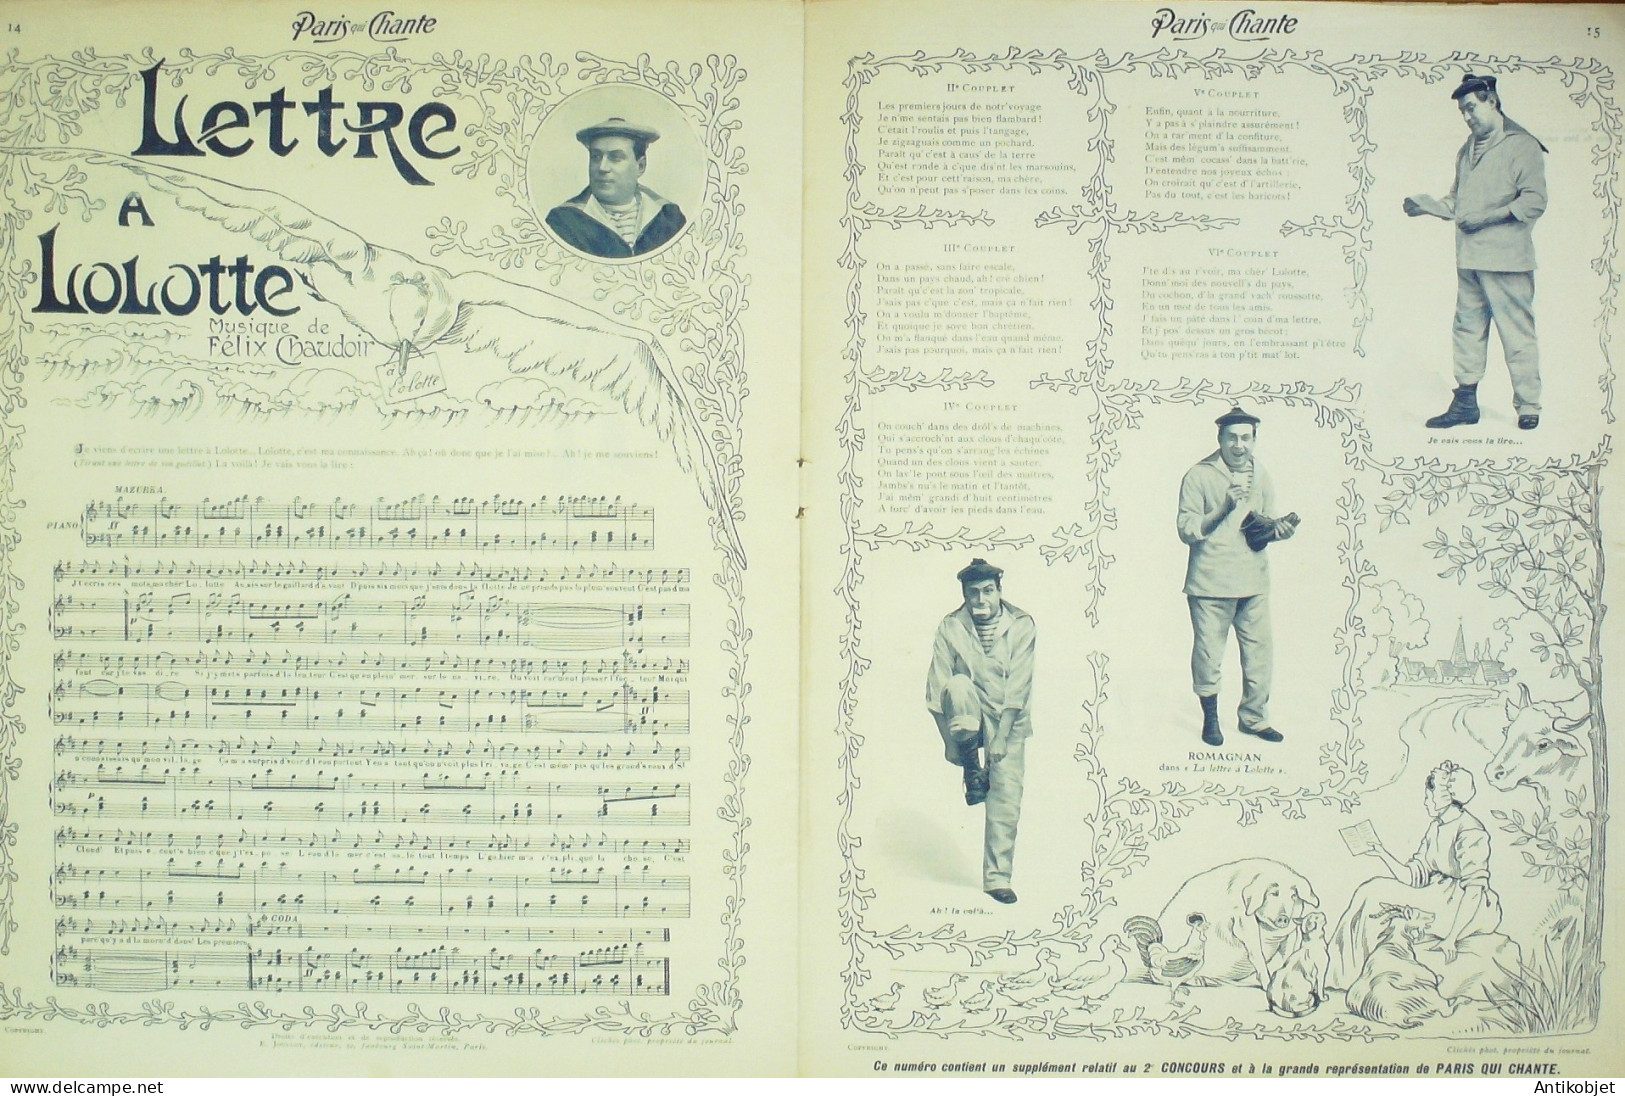 14
Paris qui Chante
Lettre
A
Lolotte
Musique de
Félix Chaudoir
à
Lolotte
Je viens d'écrire une lettre à Lolotte... Lolotte, c'est ma connaissance. Ah çà! où donc que je l'ai mise?... Ah! je me souviens!
(Tirant une lettre de son godillot.) La voilà! Je vais vous la lire:
MAZURKA.
PIANO
J't'écris ces mots, ma chèr' Lolotte Assis sur le gaillard d'avant D'puis six mois que j'suis dans la flotte Je ne prends pas le plum' souvent C'est pas d'ma
faut' car j'te vas dire Si j'y mets parfois d'la lenteur C'est qu'en plein' mer sur le navire, On voit rar'ment passer l'facteur Moi qui
n'connaissais qu'mon village Ça m'a surpris d'voir d'l'eau partout Y en a tant qu'on n'voit plus l'rivage C'est mêm' pis qu'les grand's eaux d'St
Cloud! Et puis écout's bien c'que j't'expose L'eau d'la mer c'est salé tout l'temps L'gabier m'a z'expliqué la chose, C'est
parc'qu'y a d'la morue d'dans! Les premiers
CODA
COPYRIGHT.
Droits d'exécution et de reproduction réservés.
Clichés phot. propriété du journal.
Paris qui Chante
15
IIe COUPLET
Les premiers jours de notr'voyage
Je n'me sentais pas bien flambard!
C'était l'roulis et puis l'tangage,
Je zigzaguais comme un pochard.
Paraît qu'c'est à caus' de la terre
Qu'est ronde à c'que dis'nt les marsouins,
Et c'est pour cett'raison, ma chère,
Qu'on n'peut pas s'poser dans les coins.
IIIe COUPLET
On a passé, sans faire escale,
Dans un pays chaud, ah! cré chien!
Paraît qu'c'est la zon' tropicale,
J'sais pas c'que c'est, mais ça n'fait rien!
On a voulu m'donner l'baptême,
Et quoique je soye bon chrétien,
On m'a flanqué dans l'eau quand même,
J'sais pas pourquoi, mais ça n'fait rien!
IVe COUPLET
On couch' dans des drôl's de machines,
Qui s'accroch'nt aux clous d'chaqu'côté,
Tu pens's qu'on s'arrang'les échines
Quand un des clous vient à sauter.
On lav'le pont sous l'œil des maîtres,
Jamb's nu's le matin et l'tantôt,
J'ai mêm' grandi d'huit centimètres
A forc' d'avoir les pieds dans l'eau.
Ah! la voilà...
Ve COUPLET
Enfin, quant à la nourriture,
Y a pas à s'plaindre assurément!
On a rar'ment d'la confiture,
Mais des légum's suffisamment.
C'est mêm' cocass' dans la batt'rie,
D'entendre nos joyeux échos:
On croirait qu'c'est d'l'artillerie,
Pas du tout, c'est les haricots!
VIe COUPLET
J'te dis au r'voir, ma chèr' Lolotte,
Donn'moi des nouvell's du pays,
Du cochon, d'la grand'vach' roussotte,
En un mot de tous les amis.
J'fais un pâté dans l'coin d'ma lettre,
Et j'pos' dessus un gros bécot;
Dans quéqu'jours, en l'embrassant p't'être
Qu'tu pens'ras à ton p'tit mat'lot.
Je vais vous la lire...
ROMAGNAN
dans « La lettre à Lolotte ».
COPYRIGHT.
Clichés phot. propriété du journal.
Ce numéro contient un supplément relatif au 2e CONCOURS et à la grande représentation de PARIS QUI CHANTE.
Antikobjet